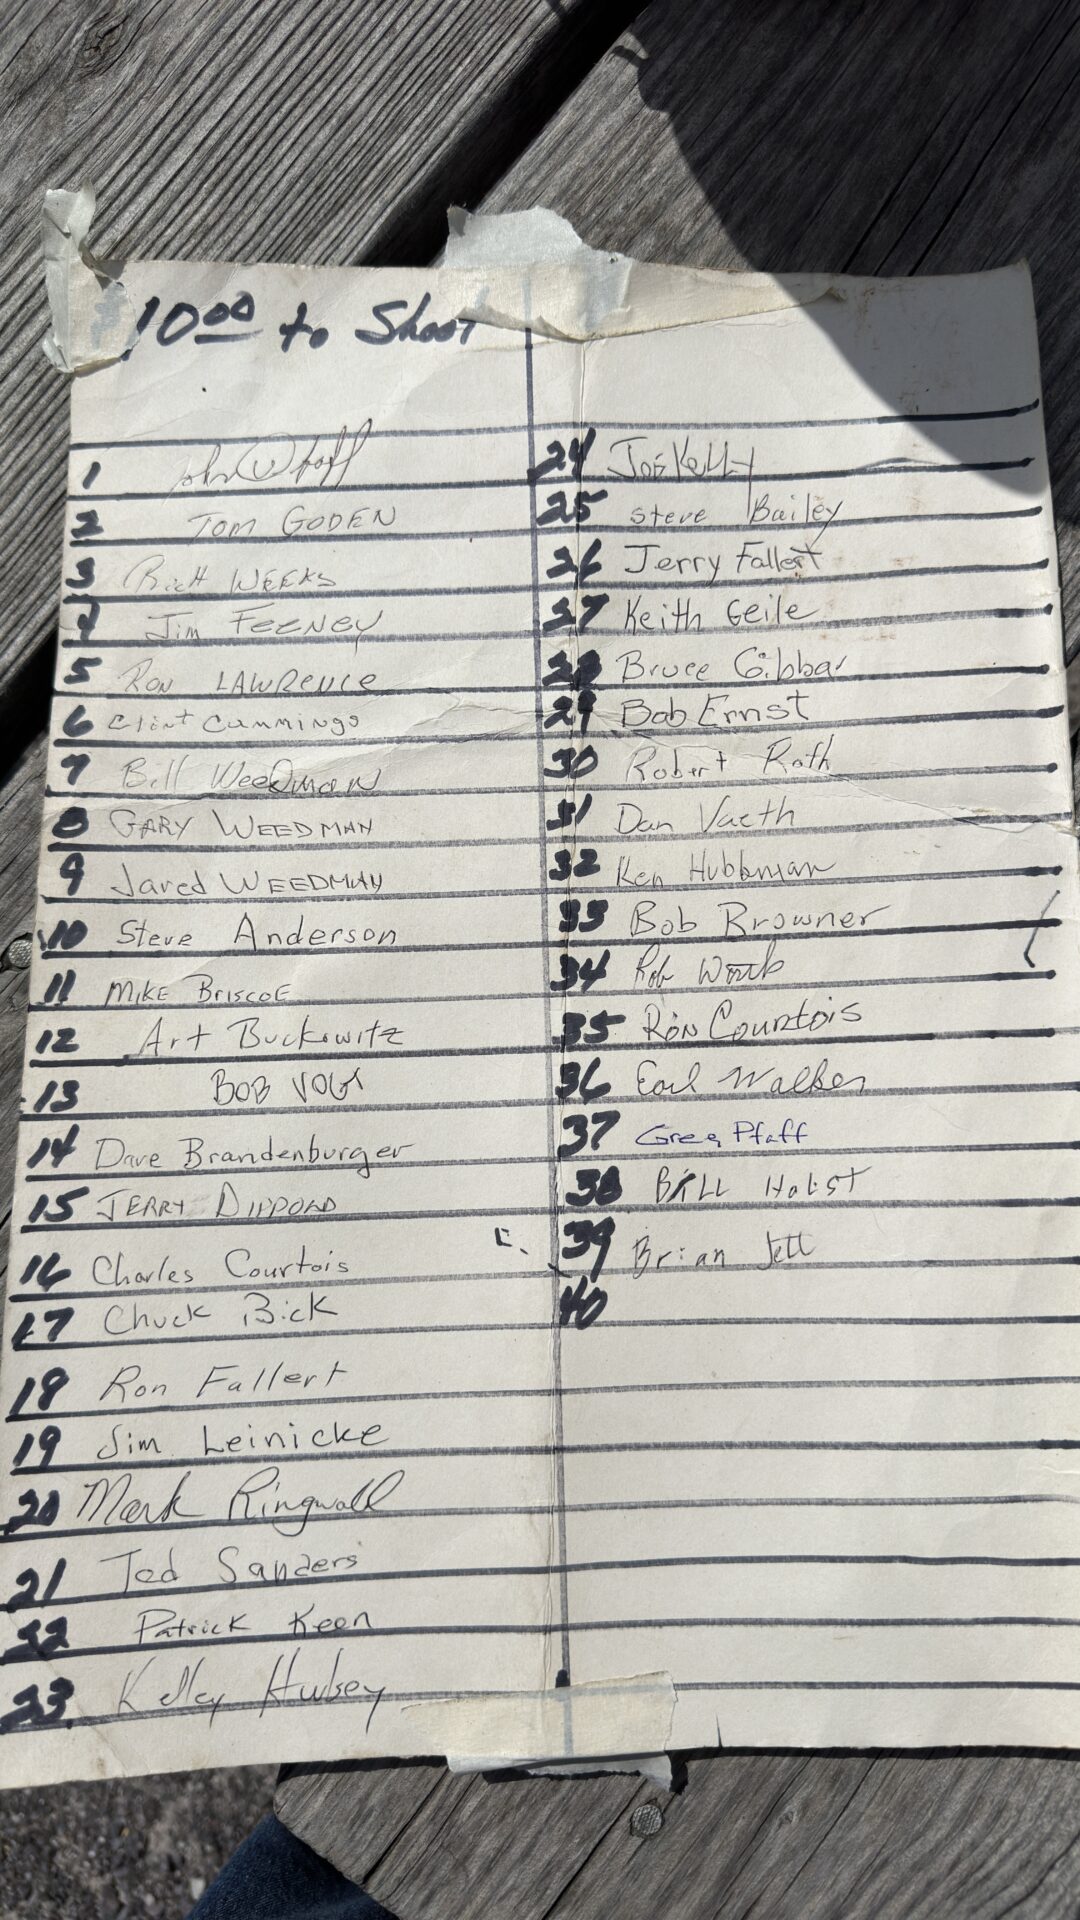 $10.00 to Shoot
1 John
2 TOM GODEN
3 Rich WEEKS
4 Jim FEENEY
5 RON LAWRENCE
6 Clint Cummings
7 Bill Weedman
8 GARY WEEDMAN
9 Jared WEEDMAN
10 Steve Anderson
11 MIKE BRISCOE
12 Art Buckowitz
13 BOB VOGT
14 Dave Brandenburger
15 JERRY
16 Charles Courtois
17 Chuck Bick
18 Ron Fallert
19 Jim Leinicke
20 Mark Ringwall
21 Ted Sanders
22 Patrick Keen
23 Kelley Hulsey
24 Joe Kelly
25 Steve Bailey
26 Jerry Fallert
27 Keith Geile
28 Bruce Gibbar
29 Bob Ernst
30 Robert Roth
31 Dan Vaeth
32 Ken
33 Bob Browner
34 Rob
35 Ron Courtois
36 Earl Walker
37 Greg Pfaff
38 BILL
39 Brian Jett
40